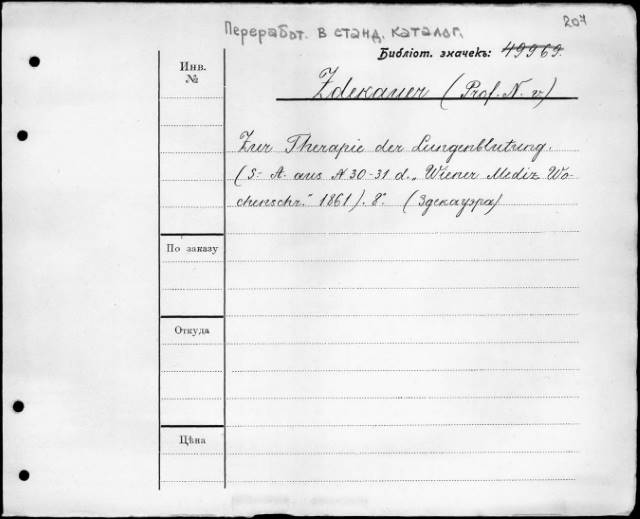 207
Переработ. в станд. каталог.
Библіот. значекъ: 49969.
Инв.
№
Zdekauer (Prof. N. v)
Zur Therapie der Lungenblutung.
(S-A. aus N 30-31 d. „Wiener Mediz Wo-
chenschr." 1861). 8°. (Здекауэра)
По заказу
Откуда
Цѣна